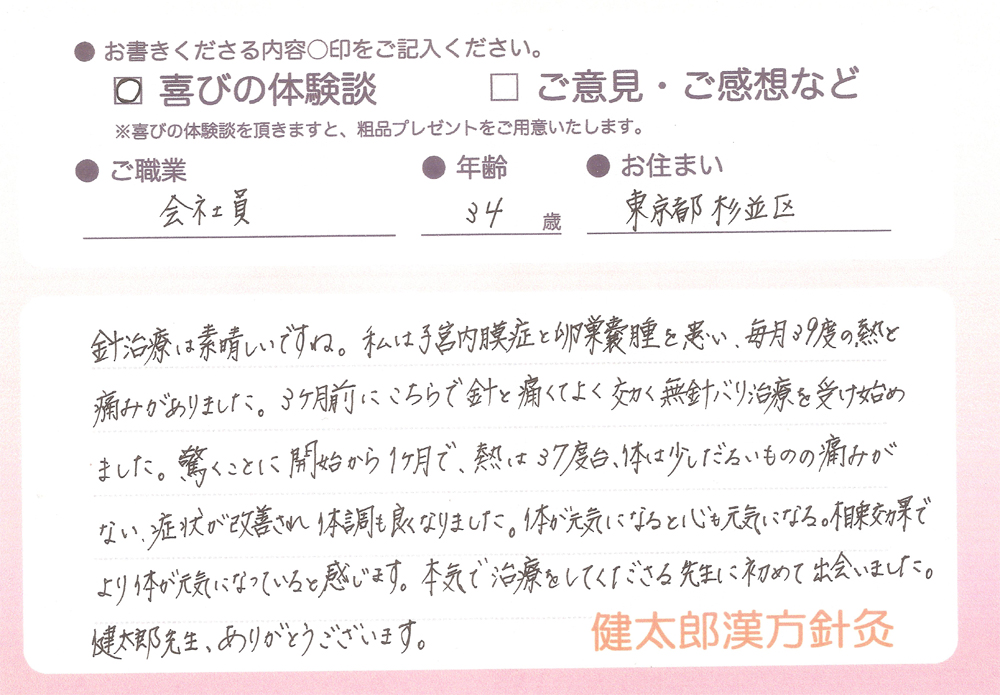 ● お書きくださる内容○印をご記入ください。
☑ 喜びの体験談 □ ご意見・ご感想など
※喜びの体験談を頂きますと、粗品プレゼントをご用意いたします。
● ご職業 ● 年齢 ● お住まい
会社員 34 歳 東京都杉並区
針治療は素晴しいですね。私は子宮内膜症と卵巣嚢腫を患い、毎月39度の熱と
痛みがありました。3ヶ月前にこちらで針と痛くてよく効く無針バリ治療を受け始め
ました。驚くことに開始から1ヶ月で、熱は37度台、体は少しだるいものの痛みが
ない、症状が改善され体調も良くなりました。体が元気になると心も元気になる。相乗効果で
より体が元気になっていると感じます。本気で治療をしてくださる先生に初めて出会いました。
健太郎先生、ありがとうございます。
健太郎漢方針灸